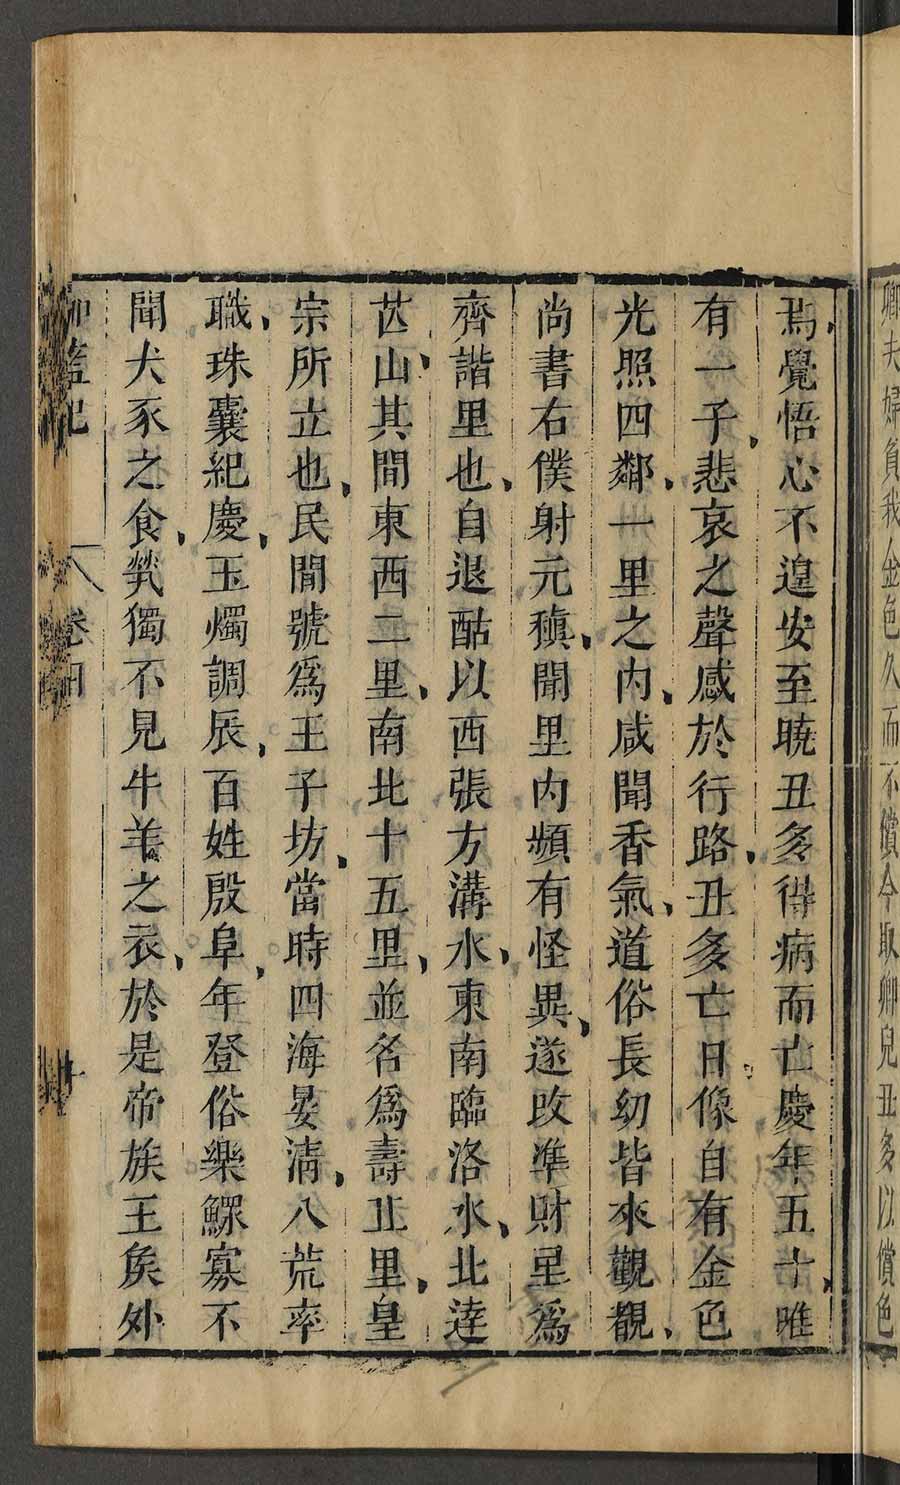 卿夫婦負我金色久而不償今取卿兒丑多以償色
焉覺悟心不遑安至曉丑多得病而亡慶年五十唯
有一子悲哀之聲感於行路丑多亡日像自有金色
光照四鄰一里之内咸聞香氣道俗長幼皆來觀覩
尚書右僕射元稹聞里内頻有怪異遂改準財里爲
齊諧里也自退酤以西張方溝水東南臨洛水北達
芒山其間東西二里南北十五里並名爲壽丘里皇
宗所立也民間號爲王子坊當時四海晏清八荒率
職珠囊紀慶玉燭調辰百姓殷阜年登俗樂鰥寡不
聞犬豕之食煢獨不見牛羊之衣於是帝族王侯外
伽藍記 卷四 十